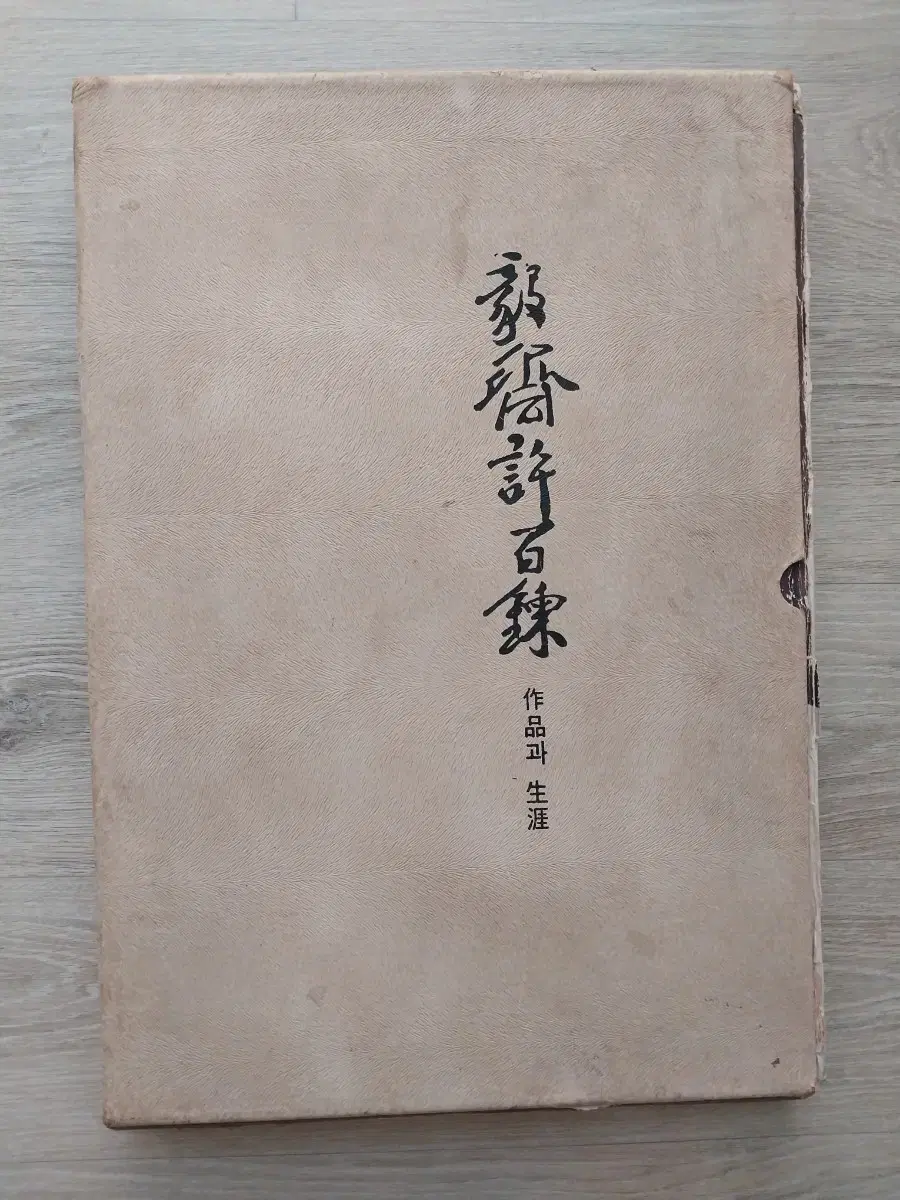 毅齋許百鍊
作品과 生涯